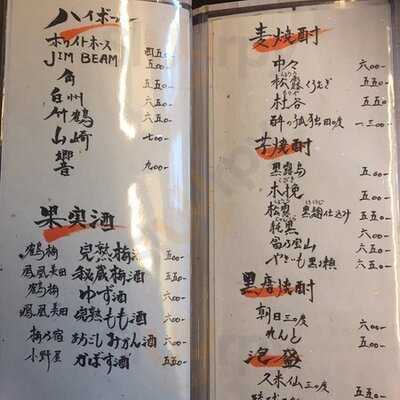 ハイボール
ホワイトホース 四五〇-
JIM BEAM 五〇〇-
角 五五〇-
白州 六五〇-
竹鶴 六五〇-
山崎 七〇〇-
響 九〇〇-
果実酒
鶴梅 完熟梅酒 五五〇-
鳳凰美田 秘蔵梅酒 五五〇-
鶴梅 ゆず酒 六〇〇-
鳳凰美田 完熟もも酒 六〇〇-
梅乃宿 あらごしみかん酒 六〇〇-
小野屋 かぼす酒 五五〇-
麦焼酎
中々 六〇〇-
松藤 五五〇-
杜谷 五五〇-
酔 独 四〇度 一三〇〇-
芋焼酎
黒霧島 五〇〇-
木挽 五五〇-
松露 黒麹仕込み 五五〇-
黒 五五〇-
富乃宝山 六五〇-
やきいも黒瀬 六五〇-
黒糖焼酎
朝日 三〇度 六〇〇-
れんと 五五〇-
泡盛
久米仙 三〇度 五五〇-